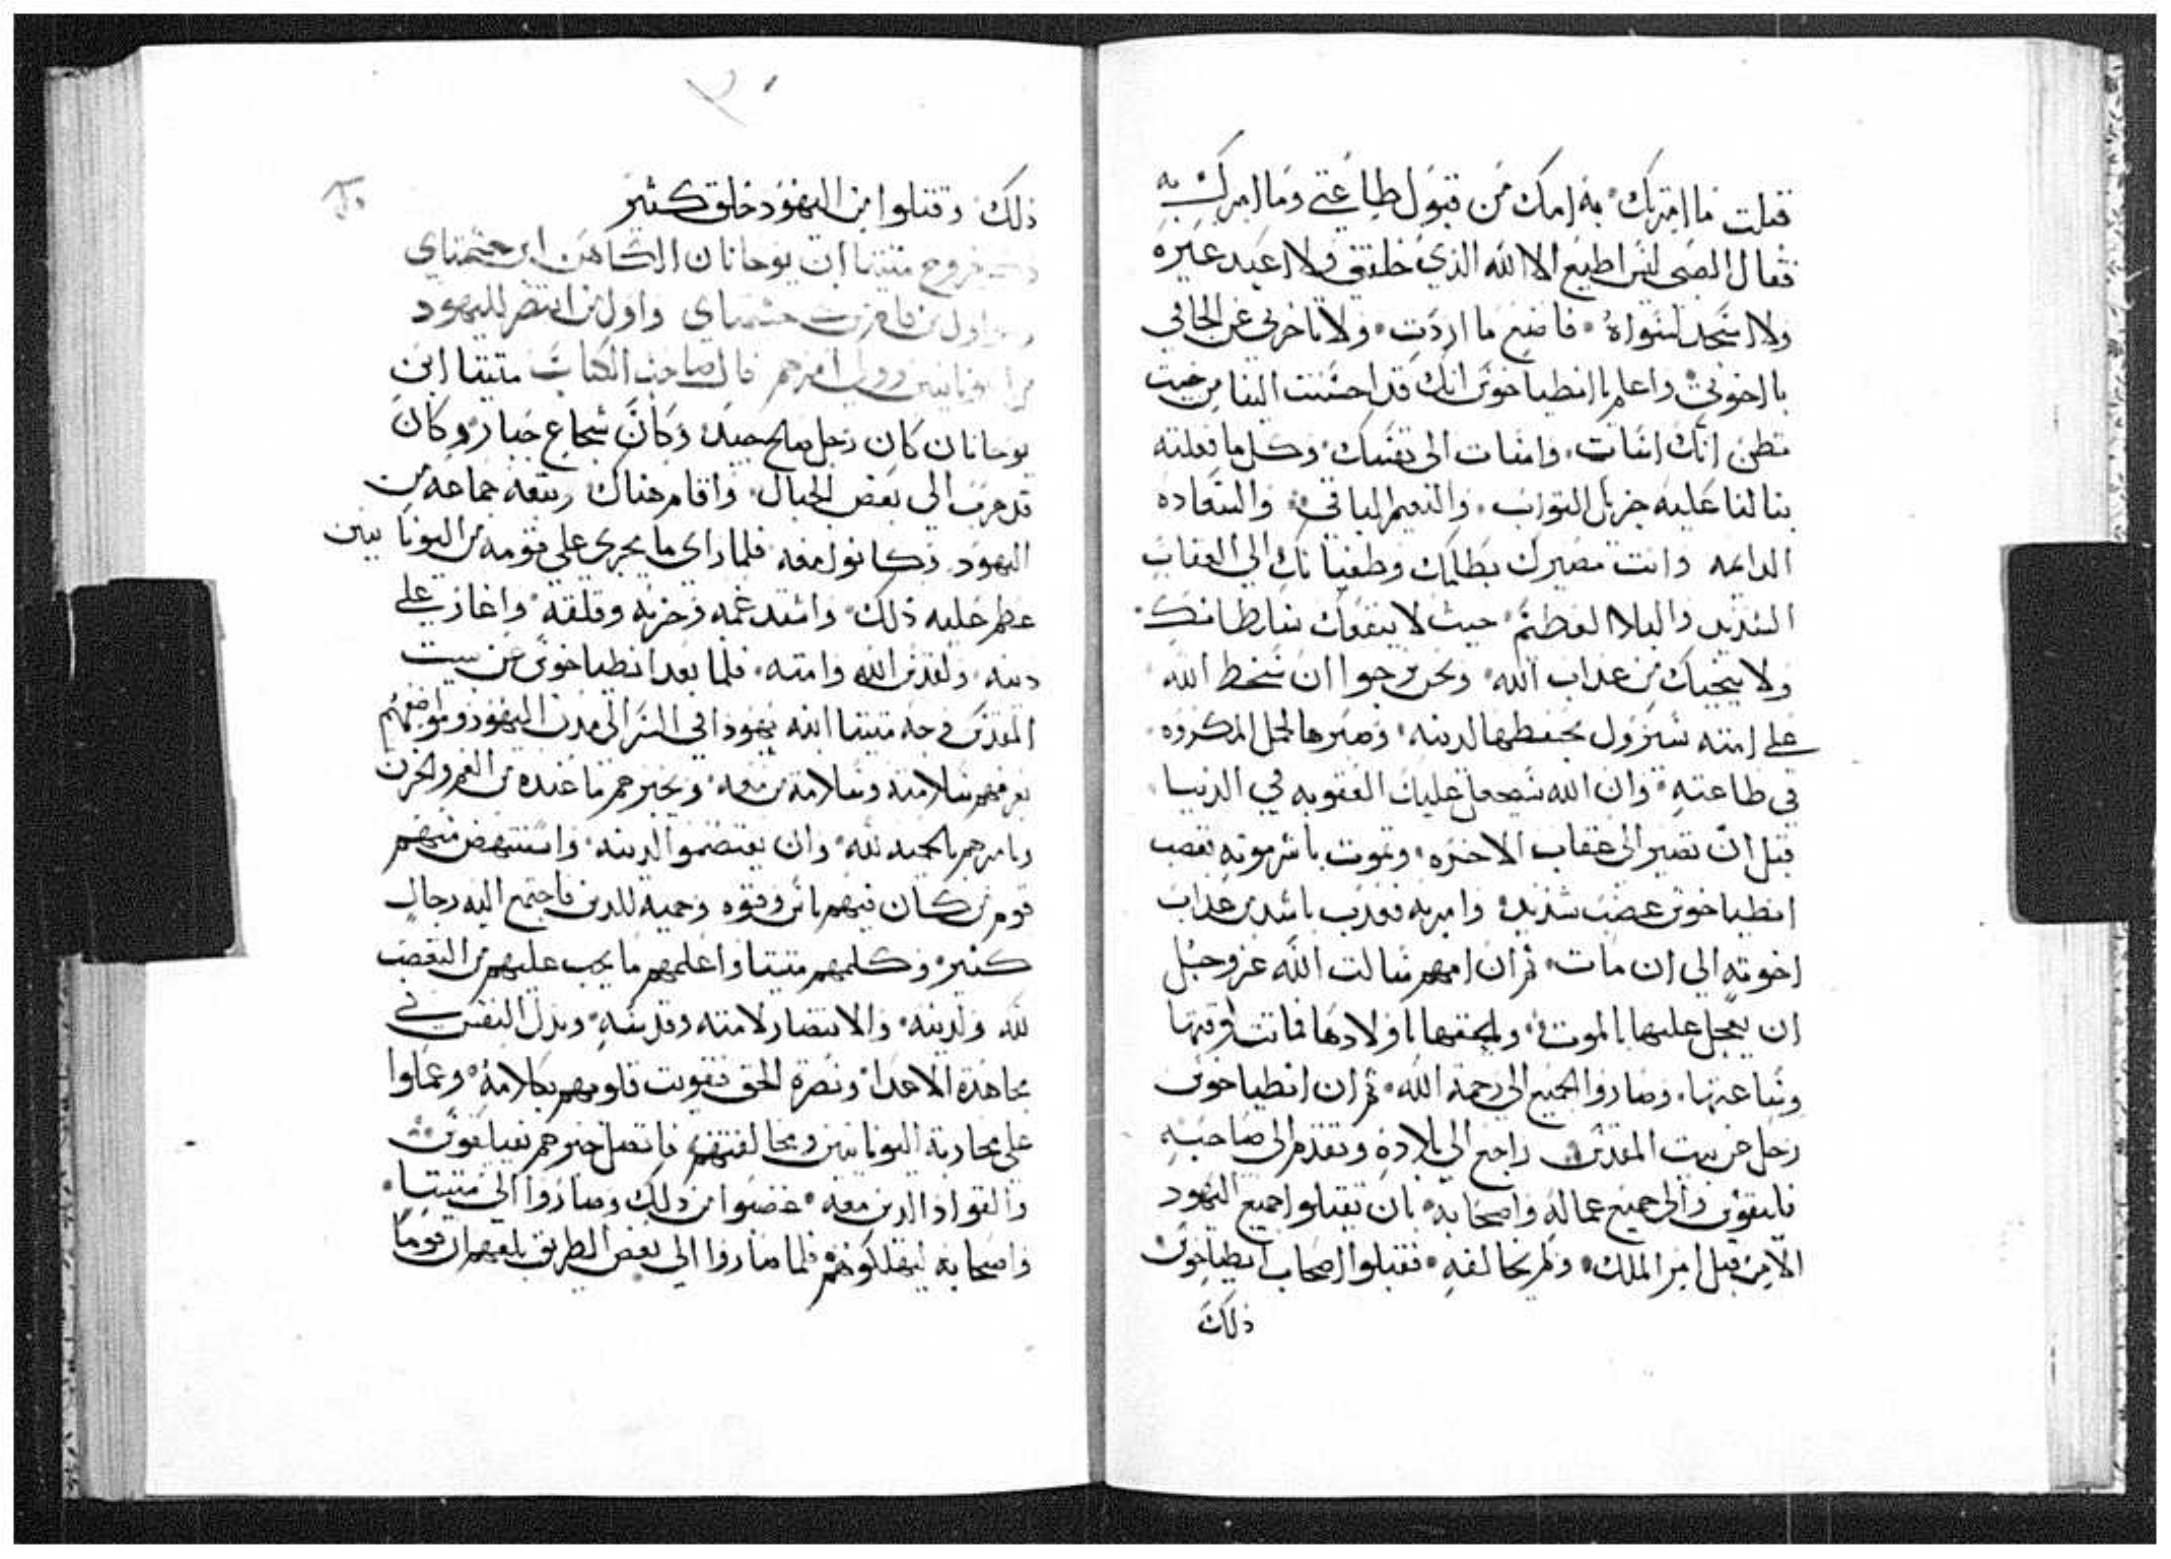 قبلت ما امرتك به امك من قبول طاعتي وما امرك به
فقال الصبي ليس اطيع الا الله الذي خلقني ولا اعبد غيره
ولا اسجد لسواه فاصنع ما اردت ولا تاخرني عن الحاقي
باخوتي واعلم يا انطياخوس انك قد احسنت الينا من حيث
تظن انك اسات واسات الى نفسك وكل ما فعلته
بنا لنا عليه جزيل الثواب والنعيم الباقي والسعاده
الدايمه وانت مصيرك بظلمك وطغيانك الي العقاب
الشديد والبلا العظيم حيث لا ينفعك سلطانك
ولا ينجيك من عذاب الله ونحن نرجوا ان سخط الله
على امته سيزول بحفظها لدينه وصبرها لحمل المكروه
في طاعته وان الله سيجعل عليك العقوبه في الدنيا
قبل ان تصير الى عقاب الاخره وتموت باشر موته فغضب
انطياخوس غضب شديد وامر به فعذب باشد من عذاب
اخوته الي ان مات ثم ان امهم سالت الله عز وجل
ان يعجل عليها بالموت ويلحقها باولادها فماتت لوقتها
وساعتها وصاروا الجميع الي رحمة الله ثم ان انطياخوس
رحل عن بيت المقدس راجع الي بلاده وتقدم الى صاحبه
فايلقوس والى جميع عماله واصحابه بان يقتلوا جميع اليهود
الا من قبل امر الملك ولم يخالفه فقتلوا اصحاب انطياخوس
ذلك
ذلك وقتلوا من اليهود خلق كثير
ذكر خروج متتيا ابن يوحانان الكاهن ابن حشمناي
وهو اول من قام من بيت حشمناي واول من انتصر لليهود
من اليونانيين ودبر امرهم قال صاحب الكتاب متتيا ابن
يوحانان كان رجل صالح جيد وكان شجاع جبار وكان
قد هرب الي بعض الجبال واقام هناك وتبعه جماعه من
اليهود وكانوا معه فلما راي ما يجري على قومه من اليونانيين
عظم عليه ذلك واشتد غمه وحزنه وقلقه واغار على
دينه ولقدس الله وامته فلما بعد انطياخوس عن بيت
المقدس وجه متتيا ابنه يهودا في السر الى مدن اليهود ومواضعهم
يعرفهم سلامته وسلامة من معه ويخبرهم ما عنده من الغم والحزن
ويامرهم بالحميه لله وان يعتصموا لدينه واستنهض منهم
قوم من كان فيهم باس وقوه وحميه للدين فاجتمع اليه رجال
كثير وكلمهم متتيا واعلمهم ما يجب عليهم من التعصب
لله ولدينه والانتصار لامته وقدسه وبذل النفس في
مجاهدة الاعدا ونصرة الحق فقويت قلوبهم بكلامه وعملوا
على محاربة اليونانيين ومخالفتهم فاتصل خبرهم بفيلقوس
والقواد الذين معه غضبوا من ذلك وصاروا الي متتيا
واصحابه ليهلكوهم فلما صاروا الي بعض الطريق بلغهم ان قوما